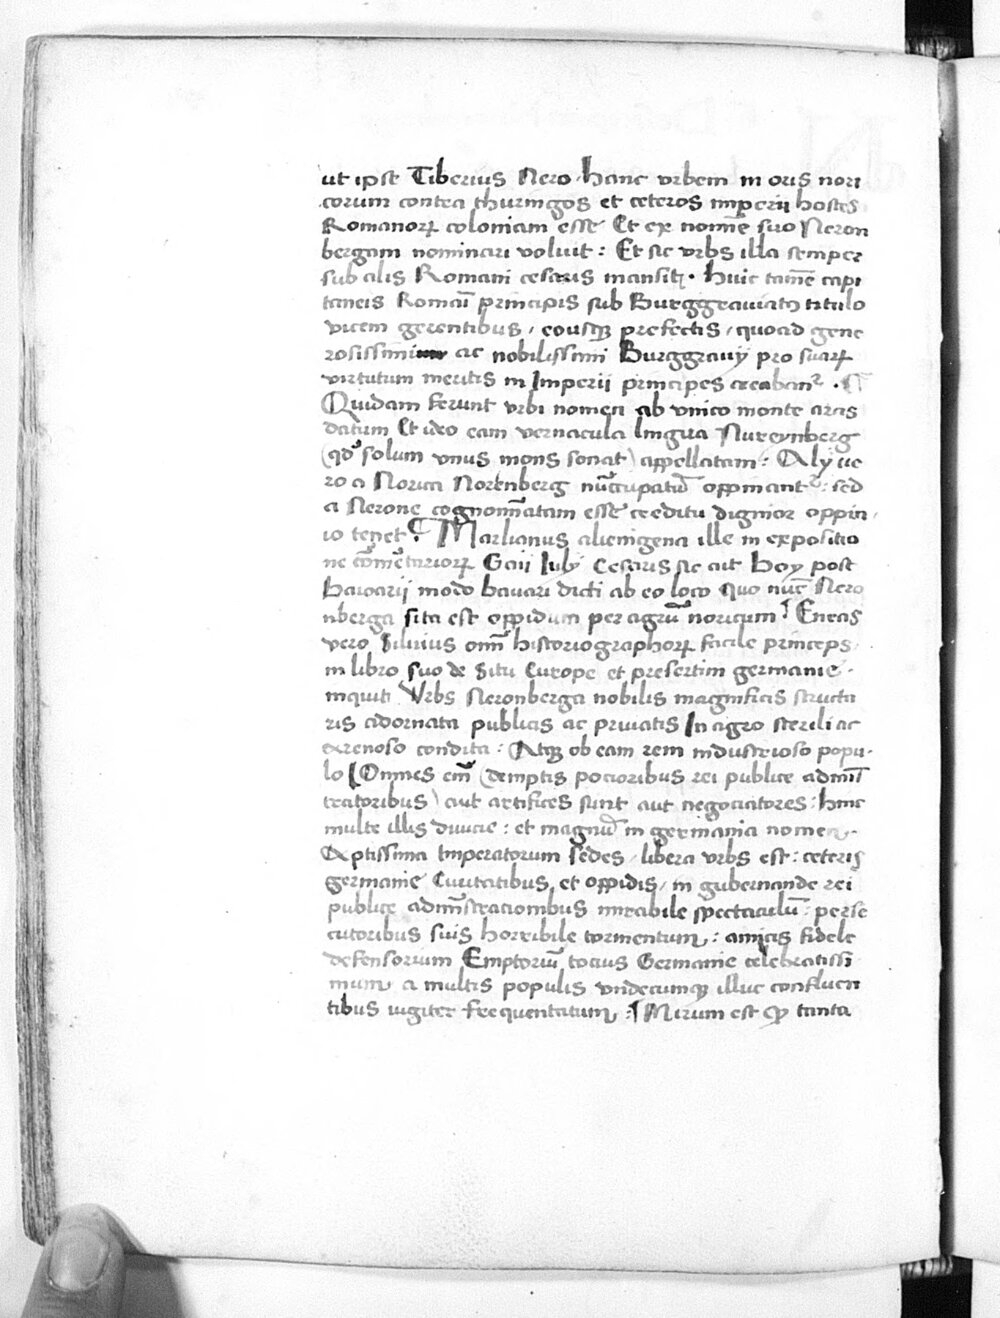 ut ipse Tiberius Nero hanc vrbem in oris nori
corum contra thuringos et ceteros imperii hostes
Romanorꝝ coloniam esse Et ex nomīe suo Neron
bergam nominari voluit : Et sic vrbs illa semper
sub alis Romani cesaris mansit; · huic tamē capi
taneis Romāi principis sub Burggrauiatꝰ titulo
vicem gerentibus / eousqꝫ prefectis / quoad gene
rosissimi ac nobilissimi Burggrauij pro suarꝝ
virtutum meritis in Imperii principes creabantᷣ · ¶
Quidam ferunt vrbi nomen ab vnico monte arcis
datum Et ideo eam vernacula lingua Nureynberg
(qd̕ solum vnus mons sonat) appellatam : Alij ve
ro a Norica Norenberg nūcupatū oppinantᷣ : sed
a Nerone cognomīatam esse creditu dignior oppin
io tenet : ¶ Marlianus alienigena ille in expositio
ne cōmētariorꝝ Gaii Iulij Cesaris sic ait Boy post
Bauarij modo bauari dicti ab eo loco quo nūc Nero
nberga sita est oppidum per agrū noricum ¶ Eneas
vero Siluius om̄ historiographorꝝ facile princeps
in libro suo de Situ Europe et presertim germanie ·
inquit Vrbs Neronberga nobilis magnificis structu
ris adornata publicis ac priuatis In agro sterili ac
arenoso condita : Atqꝫ ob eam rem industrioso popu
lo Omnes em̄ (demptis potioribus rei publice admīs
tratoribus) aut artifices sunt aut negociatores : hinc
multe illis diuicie : et magnū in germania nomen ·
Aptissima Imperatorum sedes / libera vrbs est : ceteris
germanie Ciuitatibus et oppidis / in gubernande rei
publice admīstracionibus mirabile spectaculū : perse
cutoribus suis horribile tormentum : amicis fidele
defensorium Emptoriū tocius Germanie celebratissi
mum a multis populis vndecumqꝫ illuc confluen
tibus iugiter frequentatum : ¶ Mirum est qꝫ tanta